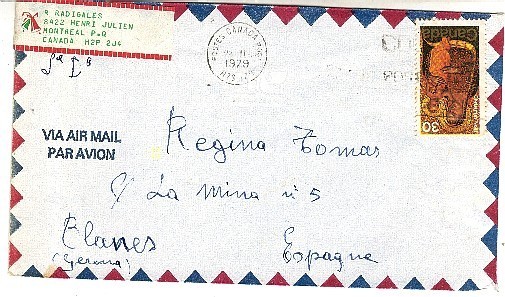 R RADIGALES
8422 HENRI JULIEN
MONTREAL P.Q
CANADA H2P 2J4
POSTES CANADA POST
1979
Canada
30
VIA AIR MAIL
PAR AVION
Regina Tomas
La Mina nº 5
Llanes
(Gerona)
Espagne